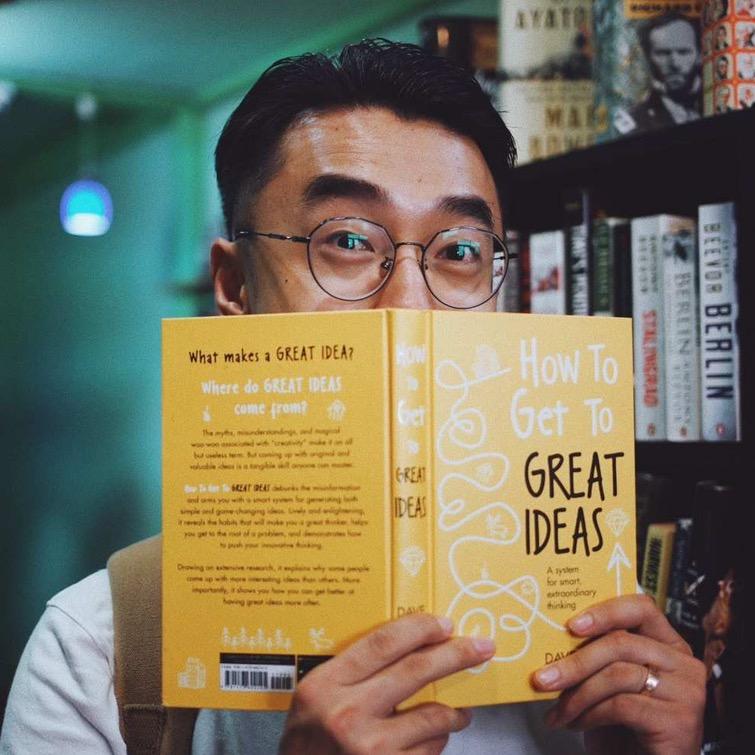 What makes a GREAT IDEA?
Where do GREAT IDEAS
come from?
The myths, misunderstandings, and magical
woo-woo associated with "creativity" make it an all
but useless term. But coming up with original and
valuable ideas is a tangible skill anyone can master.
How To Get To GREAT IDEAS debunks the misinformation
and arms you with a smart system for generating both
simple and game-changing ideas. Lively and enlightening,
it reveals the habits that will make you a great thinker, helps
you get to the root of a problem, and demonstrates how
to push your innovative thinking.
Drawing on extensive research, it explains why some people
come up with more interesting ideas than others. More
importantly, it shows you how you can get better at
having great ideas more often.
How
To
Get
To
GREAT
IDEAS
DAVE
How To
Get To
GREAT
IDEAS
A system
for smart,
extraordinary
thinking
AYATO
STALINGRAD
BERLIN
BEEVOR BERLIN